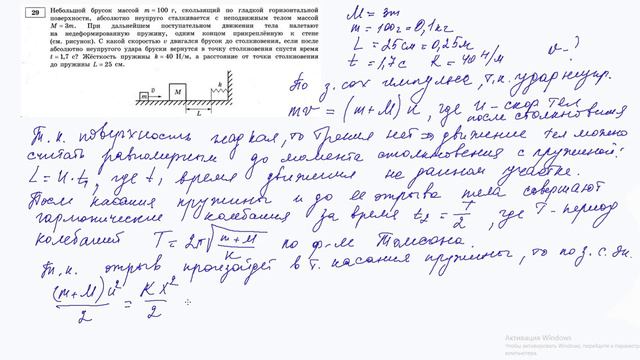 29
Небольшой брусок массой m = 100 г, скользящий по гладкой горизонтальной
поверхности, абсолютно неупруго сталкивается с неподвижным телом массой
M = 3m. При дальнейшем поступательном движении тела налетают
на недеформированную пружину, одним концом прикреплённую к стене
(см. рисунок). С какой скоростью v двигался брусок до столкновения, если после
абсолютно неупругого удара бруски вернутся в точку столкновения спустя время
t = 1,7 с? Жёсткость пружины k = 40 Н/м, а расстояние от точки столкновения
до пружины L = 25 см.
m
v
M
k
L
M = 3m
m = 100г = 0,1кг
L = 25см = 0,25м
t = 1,7с K = 40 Н/м
v - ?
По з. сох импульса, т.к. удар неупр.
mv = (m+M) u, где u - скор тел
после столкновения
Т.к. поверхность гладкая, то трения нет ⇒ движение тел можно
считать равномерным до момента столкновения с пружиной:
L = u · t₁, где t₁ время движения на данном участке.
После касания пружины и до ее отрыва тела совершают
гармонические колебания за время t₂ = T/2, где T - период
колебаний T = 2π√((m+M)/K) по ф-ле Томсона.
Т.к. отрыв произойдет в т. касания пружины, то по з. с. эн.
(m+M) u²/2 = K x²/2
Активация Windows
Чтобы активировать Windows, перейдите к параметрам
компьютера.